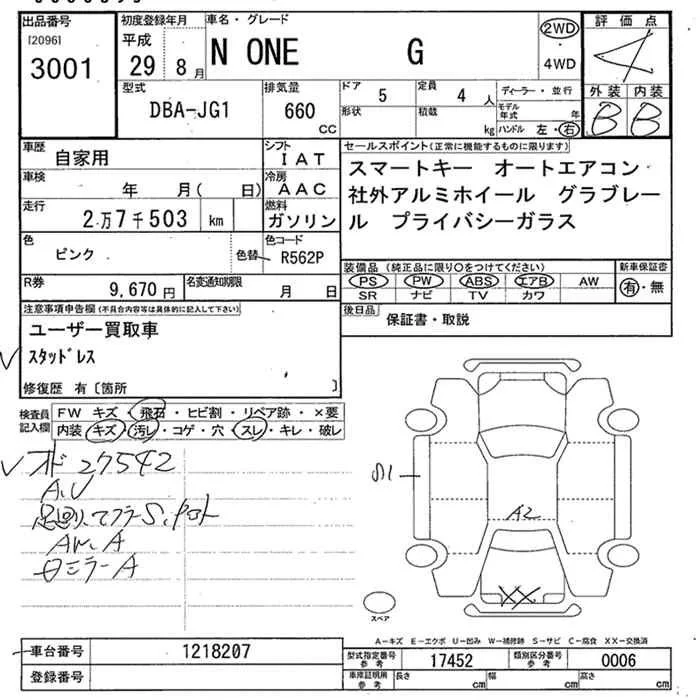 出品番号
[2096]
3001
初度登録年月
平成
29 8月
車名・グレード
N ONE G
2WD
・
4WD
評価点
4
外装 内装
B B
型式
DBA-JG1
排気量
660
CC
ドア 5
定員 4 人
形状
積載 kg
ディーラー・並行
モデル年式 年
ハンドル 左・右
車歴
自家用
シフト
IAT
車検
年 月( 日)
冷房
AAC
走行
2万7千503 km
燃料
ガソリン
色
ピンク
色替
色コード
R562P
R券
9,670円
名変通知期限
月 日
セールスポイント(正常に機能するものに限ります)
スマートキー オートエアコン
社外アルミホイール グラブレー
ル プライバシーガラス
装備品(純正品に限り○をつけてください)
PS PW ABS エアB AW
SR ナビ TV カワ
新車保証書
有・無
後日品
保証書・取説
注意事項申告欄(不具合内容等は具体的に記入して下さい)
ユーザー買取車
スタッドレス
修復歴 有〔箇所 〕
検査員
記入欄
FW キズ・飛石・ヒビ割・リペア跡・×要
内装 キズ・汚レ・コゲ・穴・スレ・キレ・破レ
オド 27542
A.U
AW.A
ミラーA
S1
A2
XX
スペア
A-キズ E-エクボ U-凹み W-補修跡 S-サビ C-腐食 XX-交換済
車台番号
1218207
登録番号
型式指定番号
参考
17452
類別区分番号
参考
0006
車庫証明用
参考
長さ cm
幅 cm
高さ cm